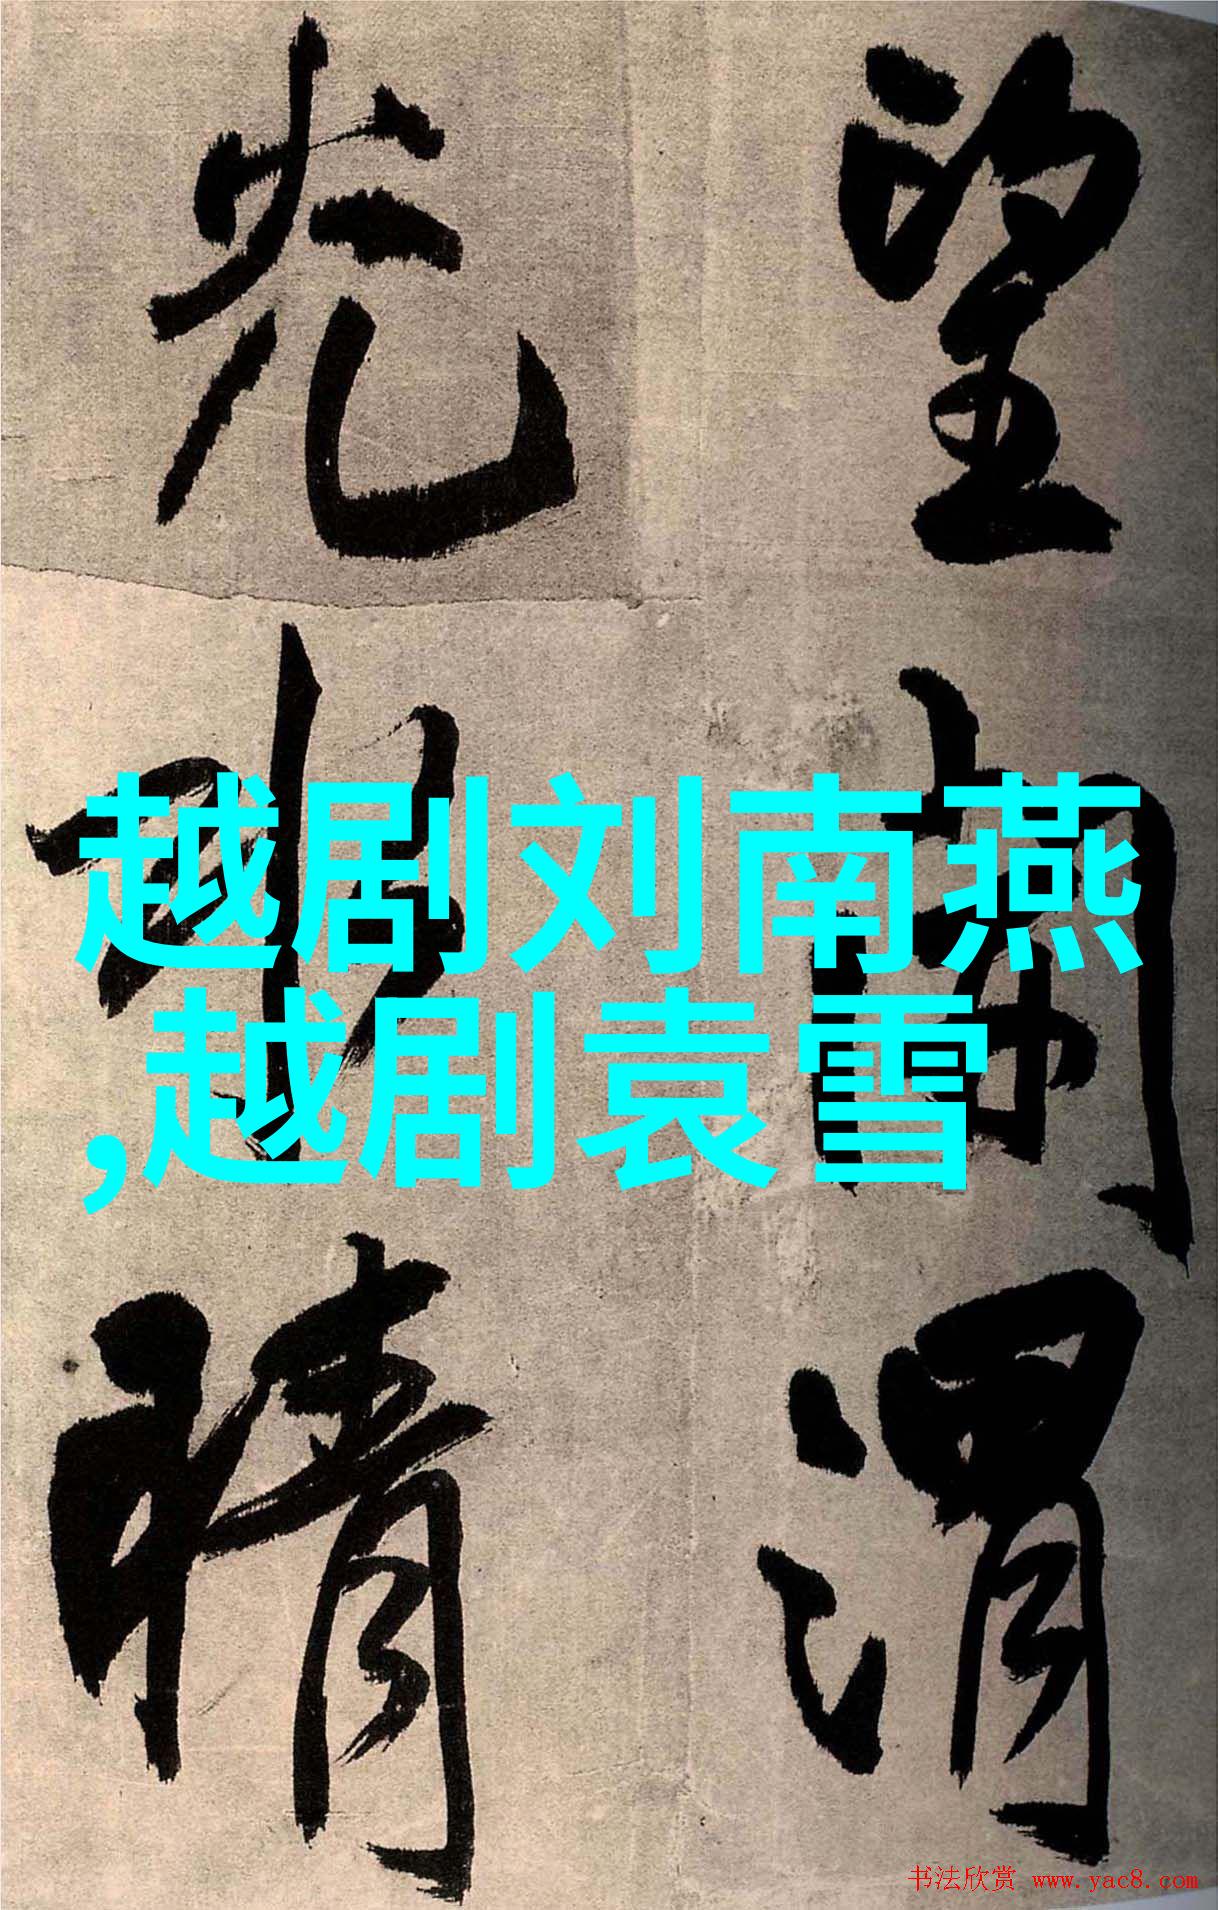 越剧刘南燕
,越剧袁雪
望 渭
光 晴
书法欣赏 www.yac8.com